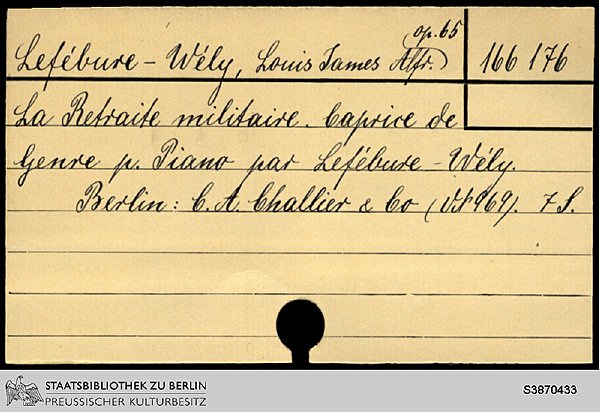 op. 65
Lefébure-Wély, Louis James Alfr. 166 176
La Retraite militaire. Caprice de
Genre p. Piano par Lefébure-Wély.
Berlin: C. A. Challier & Co (VN 969). 7 S.
STAATSBIBLIOTHEK ZU BERLIN
PREUSSISCHER KULTURBESITZ
S3870433